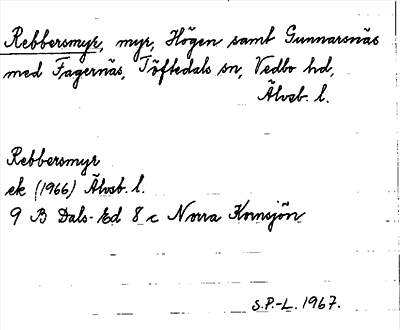 Rebbersmyr, myr, Högen samt Gunnarsnäs
med Fagernäs, Töftedals sn, Vedbo hd,
Älvsb. l.
Rebbersmyr
ek (1966) Älvsb. l.
9 B Dals-Ed 8 c Norra Kornsjön
S.P.-L. 1967.